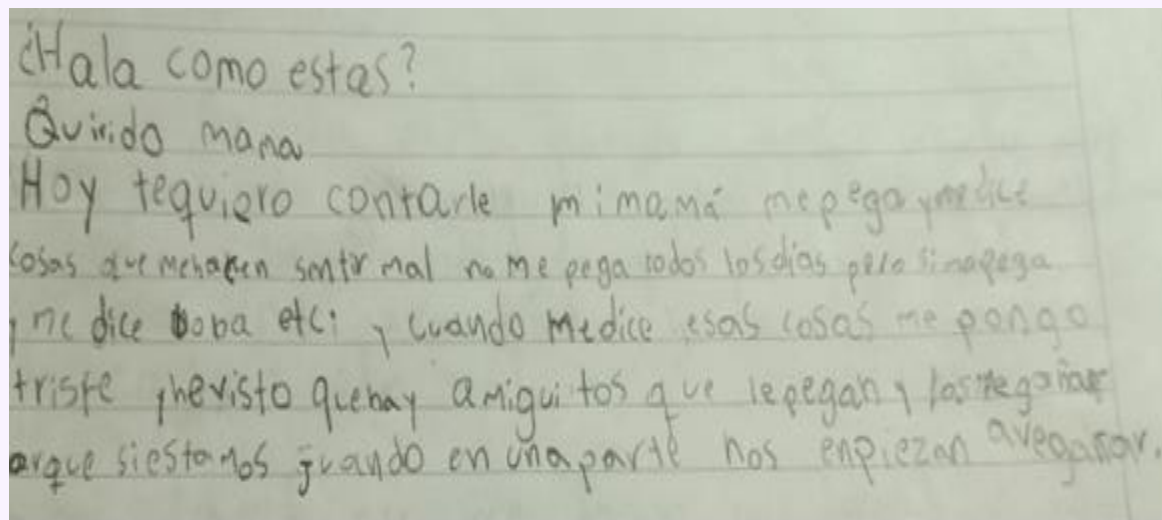 ¿Hala como estas?
Quirido mana
Hoy tequiero contarle mi mamá mepega y medice
cosas que mehacen sentir mal no me pega todos losdias pero simepega
y me dice boba etc; y cuando medice esas cosas me pongo
triste yhevisto quehay amiguitos que lepegan y los regañar
arque siestamos juando en unaparte nos enpiezan aregañar.